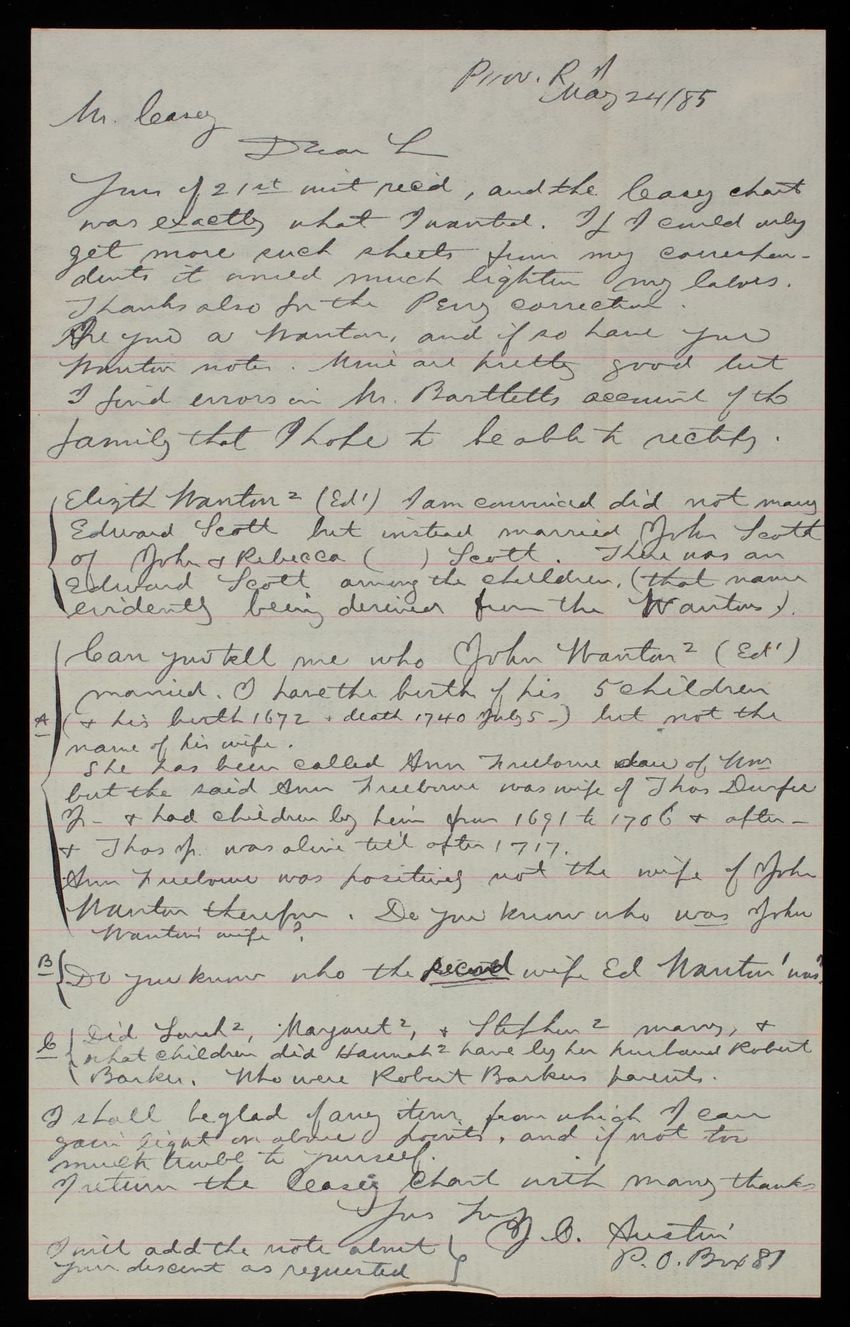 Prov. R I
May 24/85
Mr. Casey
Dear Sir
Yours of 21st inst rec'd, and the Casey chart
was exactly what I wanted. If I could only
get more such sheets from my correspon-
dents it would much lighten my labors.
Thanks also for the Perry correction.
Are you a Wanton, and if so have you
Wanton notes. Mine are pretty good but
I find errors in Mr. Bartletts account of the
family that I hope to be able to rectify.
Elizth Wanton 2 (Ed 1) I am convinced did not marry
Edward Scott but instead married John Scott
of John & Rebecca ( ) Scott. There was an
Edward Scott among the children, (that name
evidently being derived from the Wantons).
Can you tell me who John Wanton 2 (Ed 1)
married. I have the birth of his 5 children
A (& his birth 1672 & death 1740 July 5-) but not the
name of his wife.
She has been called Ann Freeborne dau of Wm
but the said Ann Freeborne was wife of Thos Durfee
Jr - & had children by him from 1691 to 1706 & after -
& Thos Jr. was alive till after 1717.
Ann Freeborne was positively not the wife of John
Wanton therefore. Do you know who was John
Wanton's wife?
B Do you know who the second wife Ed Wanton 1 was?
C Did Sarah 2, Margaret 2, & Stephen 2 marry, &
what children did Hannah 2 have by her husband Robert
Barker. Who were Robert Barkers parents.
I shall be glad of any item from which I can
gain light on above points, and if not too
much trouble to yourself.
I return the Casey Chart with many thanks
Yrs truly
J. O. Austin
P. O. Box 81
I will add the note about
your descent as requested